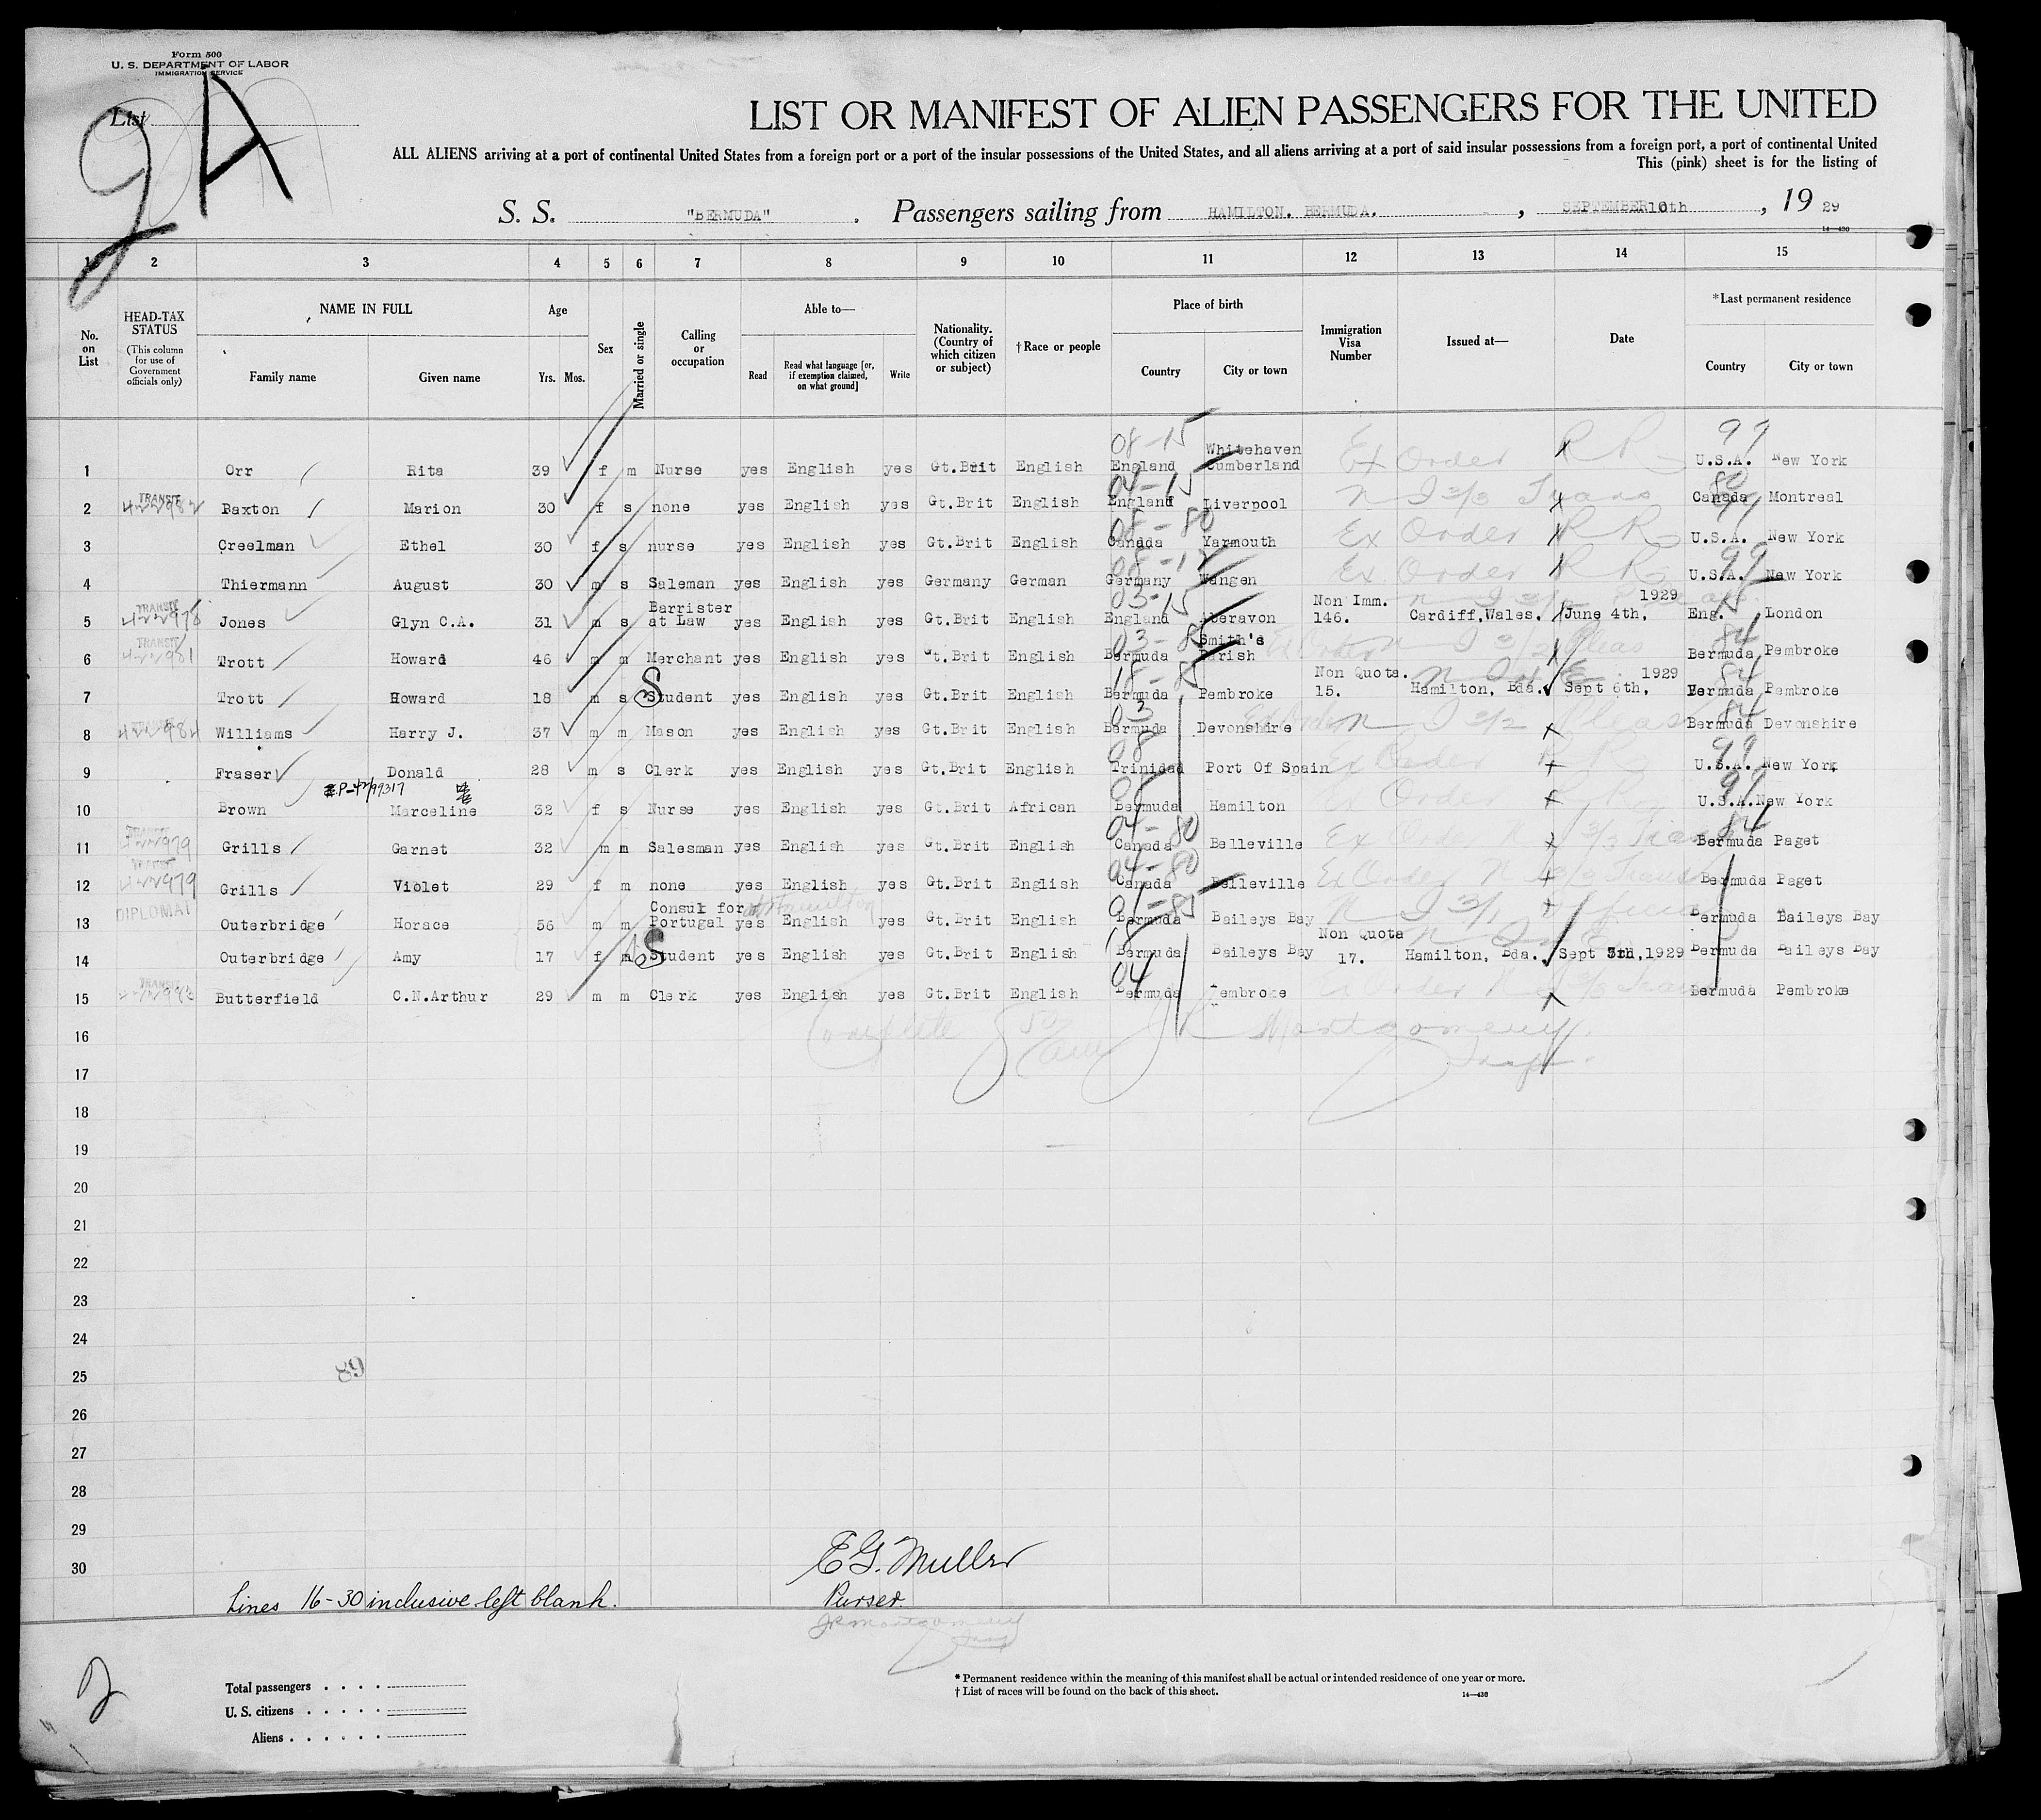 Form 500
U. S. DEPARTMENT OF LABOR
IMMIGRATION SERVICE
List
2 A
LIST OR MANIFEST OF ALIEN PASSENGERS FOR THE UNITED
ALL ALIENS arriving at a port of continental United States from a foreign port or a port of the insular possessions of the United States, and all aliens arriving at a port of said insular possessions from a foreign port, a port of continental United
This (pink) sheet is for the listing of
S. S. "BERMUDA" . Passengers sailing from HAMILTON. BERMUDA. , SEPTEMBER 10th , 19 29
14—430
1 2 3 4 5 6 7 8 9 10 11 12 13 14 15
No. on List
HEAD-TAX STATUS
(This column for use of Government officials only)
NAME IN FULL
Family name Given name
Age
Yrs. Mos.
Sex
Married or single
Calling or occupation
Able to—
Read Read what language [or, if exemption claimed, on what ground] Write
Nationality. (Country of which citizen or subject)
†Race or people
Place of birth
Country City or town
Immigration Visa Number
Issued at—
Date
*Last permanent residence
Country City or town
08-15 Whitehaven 99
1 Orr Rita 39 f m Nurse yes English yes Gt.Brit English England Cumberland Ex Order R R U.S.A. New York
TRANSIT 04-15 80
2 422982 Baxton Marion 30 f s none yes English yes Gt.Brit English England Liverpool N I 3/3 Trans Canada Montreal
08-80 99
3 Creelman Ethel 30 f s nurse yes English yes Gt.Brit English Canada Yarmouth Ex Order R R U.S.A. New York
99
4 Thiermann August 30 m s Saleman yes English yes Germany German Germany Wangen Ex Order R R U.S.A. New York
TRANSIT Barrister 03-15 Non Imm. 1929 15
5 422978 Jones Glyn C.A. 31 m s at Law yes English yes Gt.Brit English England Aberavon 146. Cardiff,Wales. June 4th, Eng. London
TRANSIT Smith's 84
6 422981 Trott Howard 46 m m Merchant yes English yes Gt.Brit English Bermuda Parish Ex Order N I 3/2 Pleas Bermuda Pembroke
S Non Quota. 1929 84
7 Trott Howard 18 m s Student yes English yes Gt.Brit English Bermuda Pembroke 15. Hamilton, Bda. Sept 6th, Bermuda Pembroke
03 84
8 422984 Williams Harry J. 37 m m Mason yes English yes Gt.Brit English Bermuda Devonshire N I 3/2 Pleas Bermuda Devonshire
08 99
9 Fraser Donald 28 m s Clerk yes English yes Gt.Brit English Trinidad Port Of Spain Ex Order R R U.S.A. New York
99
10 Brown Marceline 32 f s Nurse yes English yes Gt.Brit African Bermuda Hamilton Ex Order U.S.A. New York
TRANSIT 04-80 84
11 422979 Grills Garnet 32 m m Salesman yes English yes Gt.Brit English Canada Belleville Ex Order N I 3/3 Trans Bermuda Paget
TRANSIT 04-80
12 422979 Grills Violet 29 f m none yes English yes Gt.Brit English Canada Belleville Ex Order N I 3/3 Trans Bermuda Paget
DIPLOMAT Consul for at Hamilton
13 Outerbridge Horace 56 m m Portugal yes English yes Gt.Brit English Bermuda Baileys Bay N I 3/1 Bermuda Baileys Bay
S Non Quota
14 Outerbridge Amy 17 f Student yes English yes Gt.Brit English Bermuda Baileys Bay 17. Hamilton, Bda. Sept 1929 Bermuda Baileys Bay
TRANSIT 04
15 422983 Butterfield C.N.Arthur 29 m m Clerk yes English yes Gt.Brit English Bermuda Pembroke Ex Order N I 3/3 Trans Bermuda Pembroke
16 Complete JR Montgomery
17 Insp.
18
19
20
21
22
23
24
25 89
26
27
28
29
30 E G. Muller
Lines 16-30 inclusive left blank. Purser.
JR Montgomery
Insp
2
Total passengers . . . .
U. S. citizens . . . . .
Aliens . . . . . .
* Permanent residence within the meaning of this manifest shall be actual or intended residence of one year or more.
† List of races will be found on the back of this sheet. 14—430